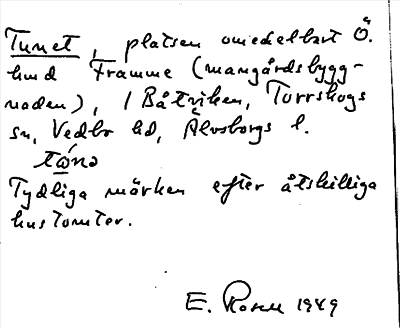 Tunet, platsen omedelbart Ö.
hund Framme (mangårdsbygg-
naden), i Båtviken, Torrskogs
sn, Vedbo hd, Älvsborgs l.
Tydliga märken efter åtskilliga
hustomter.
E. Rosell 1949